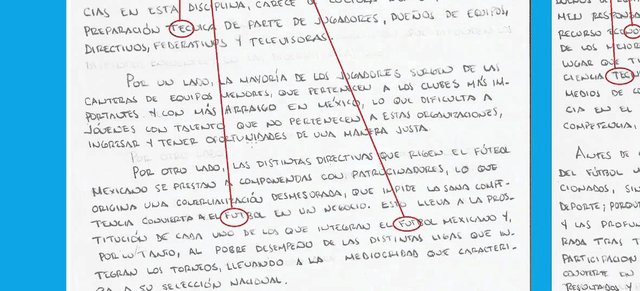 CIAS EN ESTA DISCIPLINA, CARECE
PREPARACIÓN TECNICA DE PARTE DE JUGADORES, DUEÑOS DE EQUIPOS,
DIRECTIVOS, FEDERATIVOS Y TELEVISORAS.
POR UN LADO, LA MAYORÍA DE LOS JUGADORES SURGEN DE LAS
CANTERAS DE EQUIPOS MENORES, QUE PERTENECEN A LOS CLUBES MÁS IM-
PORTANTES Y CON MÁS ARRAIGO EN MÉXICO, LO QUE DIFICULTA A
JÓVENES CON TALENTO QUE NO PERTENECEN A ESTAS ORGANIZACIONES,
INGRESAR Y TENER OPORTUNIDADES DE UNA MANERA JUSTA.
POR OTRO LADO, LAS DISTINTAS DIRECTIVAS QUE RIGEN EL FÚTBOL
MEXICANO SE PRESTAN A COMPONENDAS CON PATROCINADORES, LO QUE
ORIGINA UNA DESMESORADA, QUE IMPIDE LA SANA COMPE-
TENCIA CONVIERTA A EL FUTBOL EN UN NEGOCIO. ESTO LLEVA A LA PROS-
TITUCIÓN DE CADA UNO DE LOS QUE INTEGRAN EL FUTBOL MEXICANO Y,
POR LO TANTO, AL POBRE DESEMPEÑO DE LAS DISTINTAS LIGAS QUE IN-
TEGRAN LOS TORNEOS, LLEVANDO A LA MEDIOCRIDAD QUE CARACTERI-
ZA A SU SELECCIÓN NACIONAL.
MEN RESPONSA
RECURSO ECONO
DE LOS MEJOR
LUGAR QUE T
CIENCIA TEC
MEDIOS DE CO
CIA EN EL
COMPETENCIA,
ANTES DE
DEL FÚTBOL M
CIONADOS, SIN
DEPORTE; PORQU
Y LAS PROFUN
RADA TRAS T
PARTICIPACIÓN
CONVIERTE EN
RESULTADOS Y